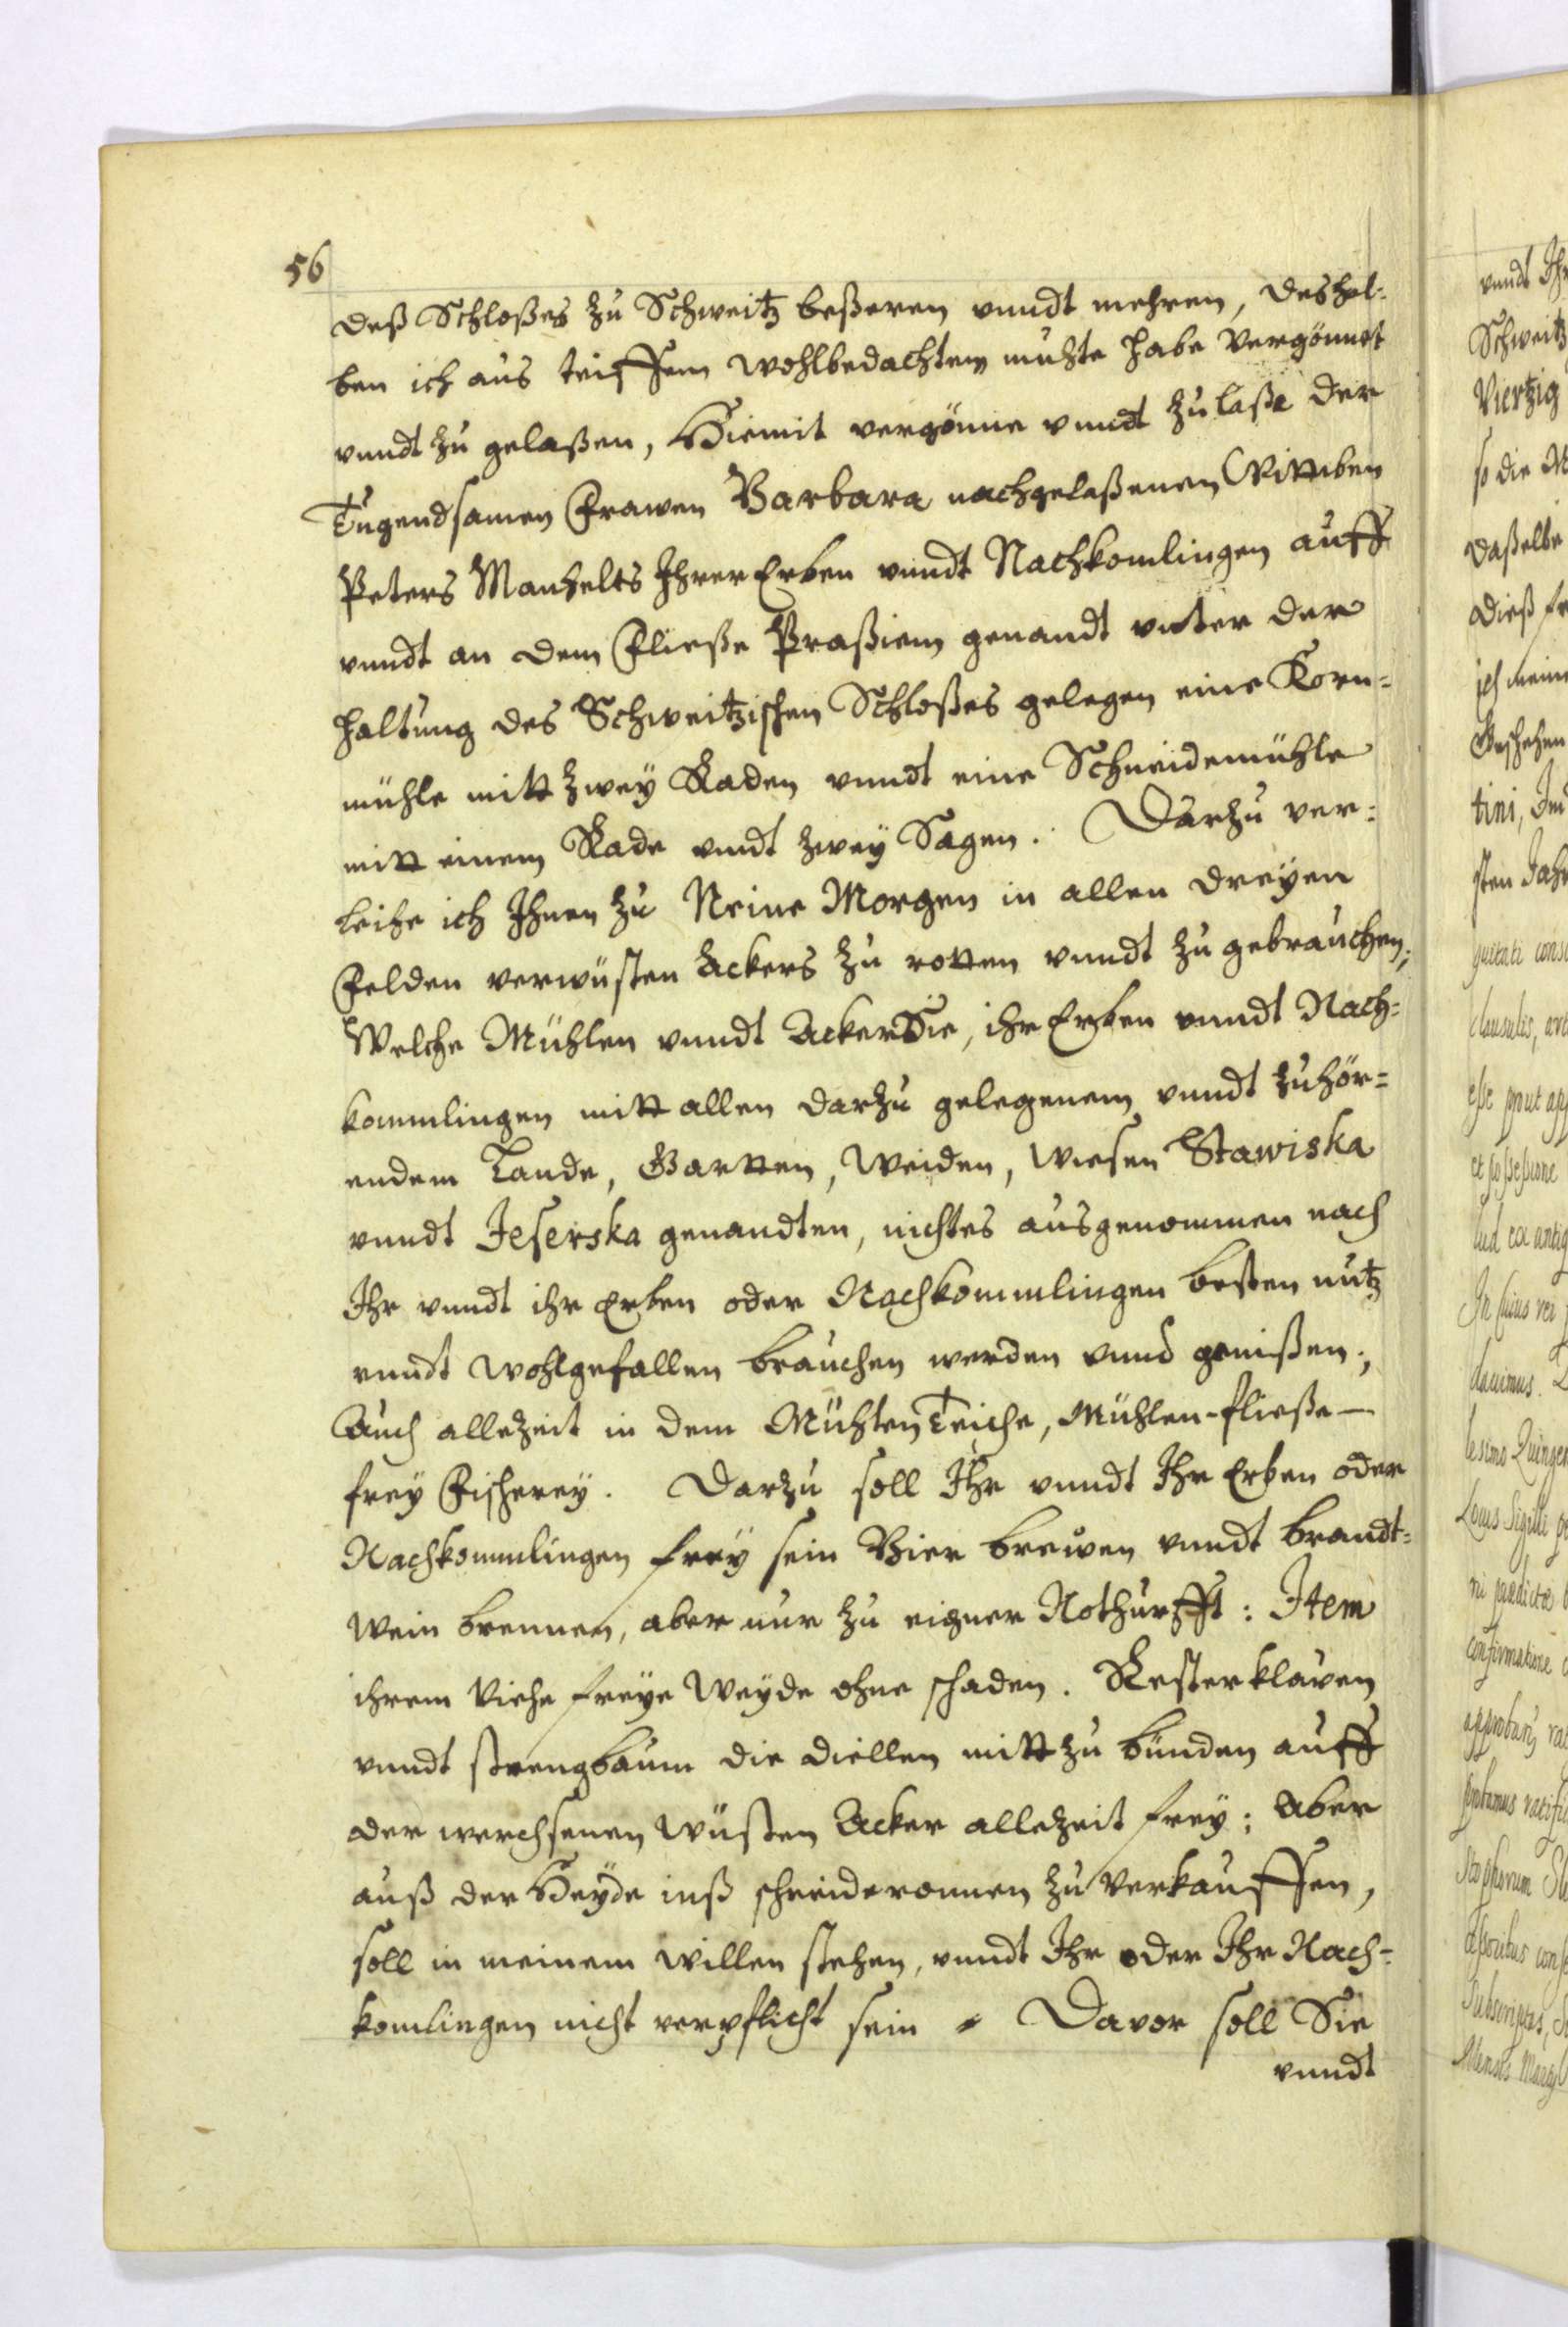 56
deß Schloßes zu Schweitz beßeren vnndt mehren, deshal-
ben ich aus teiffem wohlbedachtem muhte habe vergönnet
vnndt zu gelaßen, Hiemit vergönne vnndt zu laße der
Tugendsamen Frawen Barbara nachgelaßenen Wittiben
Peters Manhelts Ihrer Erben vnndt Nachkomlingen auff
vnndt an dem Fließe Praßiem genandt vnter der
haltung des Schweitzischen Schloßes gelegen eine Korn-
mühle mitt zwey Raden vnndt eine Schneidemühle
mitt einem Rade vndt zwey Sagen. Darzu ver-
leihe ich Ihnen zu Neine Morgen in allen dreyen
Felden verwüsten Ackers zu rotten vnndt zu gebrauchen;
Welche Mühlen vnndt Acker Sie, ihr Erben vnndt Nach-
kommlingen mitt allen darzu gelegenem vnndt zuhör-
endem Lande, Gartten, Weiden, Wiesen Stawiska
vnndt Jeserska genandten, nichtes ausgenommen nach
Ihr vnndt ihr Erben oder Nachkommlingen besten nutz
vnndt wohlgefallen brauchen werden vnnd genißen;
Auch allezeit in dem Mühlen Teiche, Mühlen-fließe
frey Fischerey. Darzu soll Ihr vnndt Ihr Erben oder
Nachkommlingen frey sein Bier brewen vnndt brandt-
wein brennen, aber nur zu eigner Nothurfft: Item
ihrem Viehe freye Weyde ohne schaden. Resterklaven
vnndt strengbaum die diellen mitt zu bünden auff
der werchsenen wüsten Acker allezeit frey; Aber
auß der Heyde inß schneideronnen zu verkauffen,
soll in meinem willen stehen, vnndt Ihr oder Ihr Nach-
komlingen nicht verpflicht sein Davor soll Sie
vnndt
vnndt Ihr
Schweitz
Viertzig
so die M
daßelbe
dieß
ich meine
Geschehen
tini, Im
sten Jahr
clausulis,
esse prout
et possessione
In cuius rei
Locus Sigilli
confirmatione
Subscriptas,
Mensis